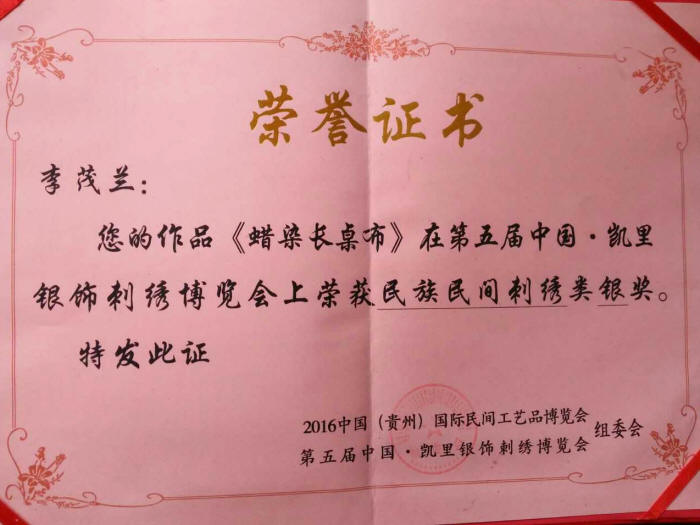 荣誉证书
李茂兰：
您的作品《蜡染长桌布》在第五届中国·凯里
银饰刺绣博览会上荣获民族民间刺绣类银奖。
特发此证
2016中国（贵州）国际民间工艺品博览会
第五届中国·凯里银饰刺绣博览会
组委会